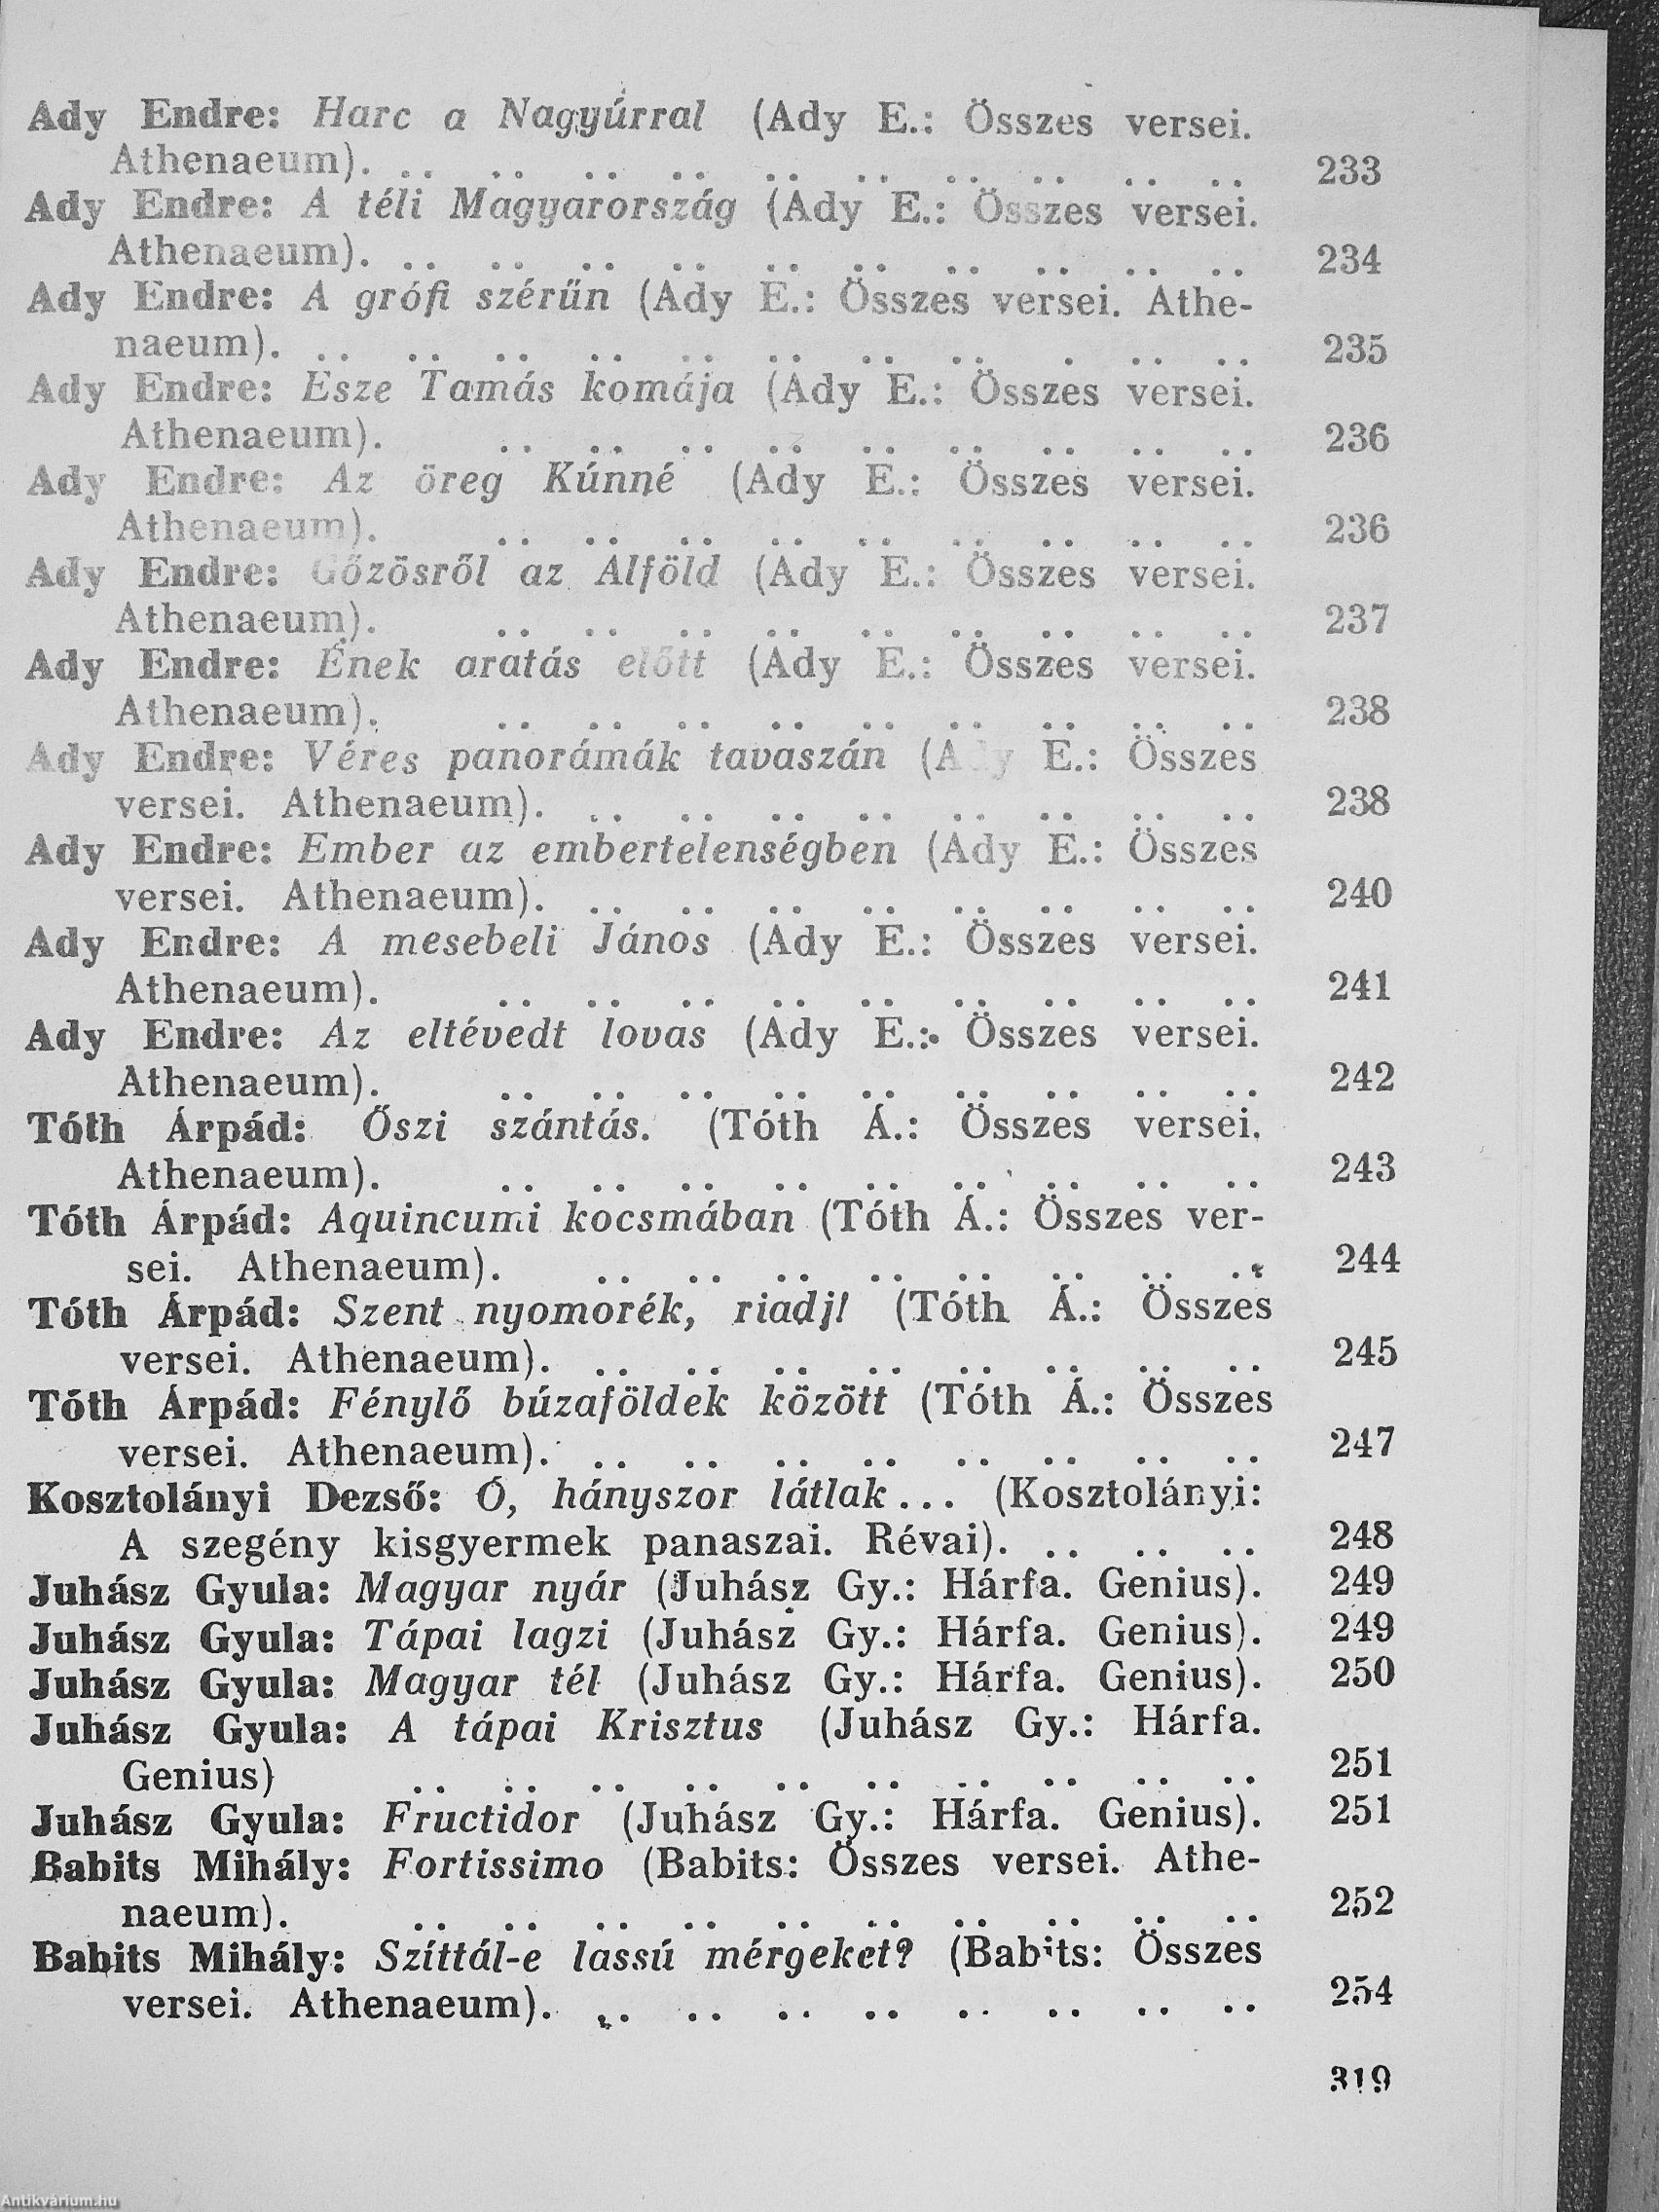 Ady Endre: Harc a Nagyúrral (Ady E.: Összes versei.
Athenaeum). .. .. .. .. .. .. .. .. .. .. 233
Ady Endre: A téli Magyarország (Ady E.: Összes versei.
Athenaeum). .. .. .. .. .. .. .. .. .. .. 234
Ady Endre: A grófi szérűn (Ady E.: Összes versei. Athe-
naeum). .. .. .. .. .. .. .. .. . .. .. 235
Ady Endre: Esze Tamás komája (Ady E.: Összes versei.
Athenaeum). .. .. .. .. .. .. .. .. .. 236
Ady Endre: Az öreg Kúnné (Ady E.: Összes versei.
Athenaeum). .. .. .. .. .. .. .. .. .. 236
Ady Endre: Gőzösről az Alföld (Ady E.: Összes versei.
Athenaeum). .. .. .. .. .. .. .. .. .. 237
Ady Endre: Ének aratás előtt (Ady E.: Összes versei.
Athenaeum). .. .. .. .. .. .. .. .. .. 238
Ady Endre: Véres panorámák tavaszán (Ady E.: Összes
versei. Athenaeum). .. .. .. .. .. .. .. .. 238
Ady Endre: Ember az embertelenségben (Ady E.: Összes
versei. Athenaeum). .. .. .. .. .. .. .. .. 240
Ady Endre: A mesebeli János (Ady E.: Összes versei.
Athenaeum). .. .. .. .. .. .. .. .. .. 241
Ady Endre: Az eltévedt lovas (Ady E.: Összes versei.
Athenaeum). .. .. .. .. .. .. .. .. .. 242
Tóth Árpád: Őszi szántás. (Tóth Á.: Összes versei.
Athenaeum). .. .. .. .. .. .. .. .. .. 243
Tóth Árpád: Aquincumi kocsmában (Tóth Á.: Összes ver-
sei. Athenaeum). .. .. .. .. .. .. .. .. 244
Tóth Árpád: Szent nyomorék, riadj! (Tóth Á.: Összes
versei. Athenaeum). .. .. .. .. .. .. .. .. 245
Tóth Árpád: Fénylő búzaföldek között (Tóth Á.: Összes
versei. Athenaeum). .. .. .. .. .. .. .. .. 247
Kosztolányi Dezső: Ó, hányszor látlak... (Kosztolányi:
A szegény kisgyermek panaszai. Révai). .. .. .. 248
Juhász Gyula: Magyar nyár (Juhász Gy.: Hárfa. Genius). 249
Juhász Gyula: Tápai lagzi (Juhász Gy.: Hárfa. Genius). 249
Juhász Gyula: Magyar tél (Juhász Gy.: Hárfa. Genius). 250
Juhász Gyula: A tápai Krisztus (Juhász Gy.: Hárfa.
Genius) .. .. .. .. .. .. .. .. .. .. 251
Juhász Gyula: Fructidor (Juhász Gy.: Hárfa. Genius). 251
Babits Mihály: Fortissimo (Babits: Összes versei. Athe-
naeum). .. .. .. .. .. .. .. .. .. .. 252
Babits Mihály: Szíttál-e lassú mérgeket? (Babits: Összes
versei. Athenaeum). .. .. .. .. .. .. .. .. 254
319
Antikvárium.hu